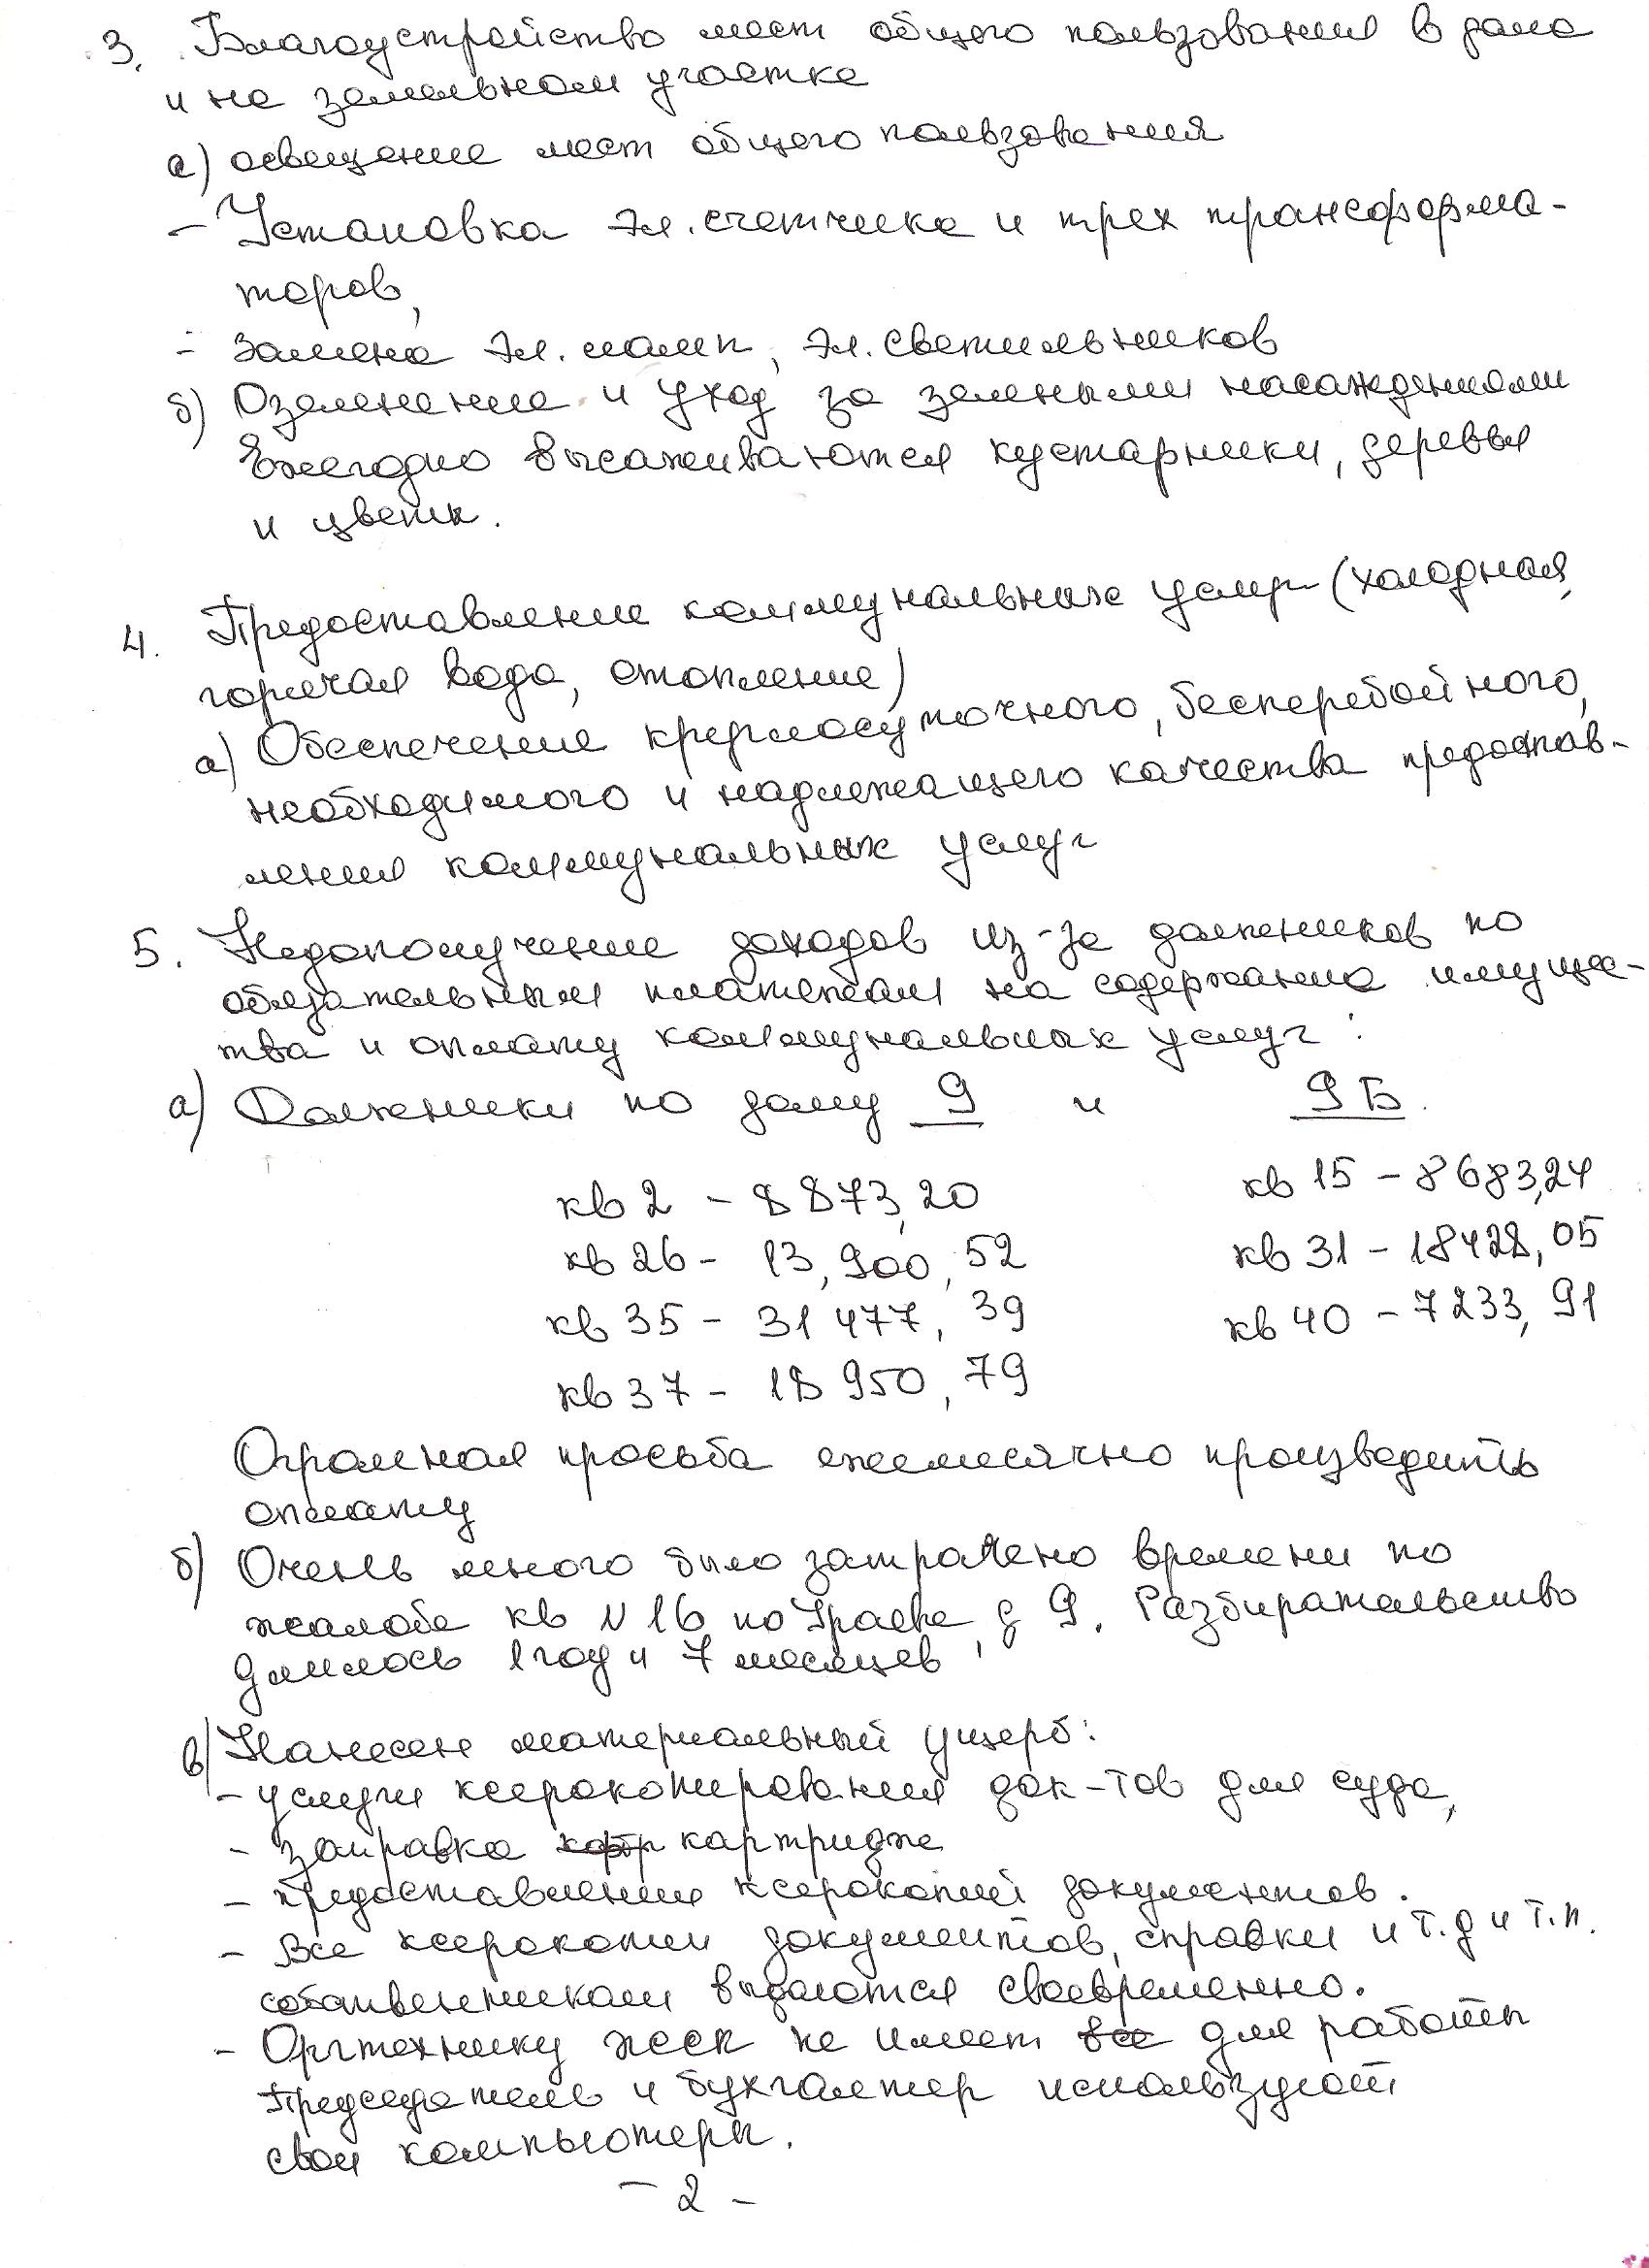 3. Благоустройство мест общего пользования в доме
и на земельном участке
а) освещение мест общего пользования
- Установка эл. счетчика и трех трансформа-
торов,
- Замена эл. ламп, эл. светильников
б) Озеленение и уход за зелеными насаждениями
Ежегодно высаживаются кустарники, деревья
и цветы.
4. Предоставление коммунальных услуг (холодная,
горячая вода, отопление)
а) Обеспечение круглосуточного, бесперебойного,
необходимого и надлежащего качества предостав-
ления коммунальных услуг
5. Недополучение доходов из-за должников по
обязательным платежам на содержание имущес-
тва и оплату коммунальных услуг:
а) Должники по дому 9 и 9Б.
кв 2 - 8873,20 кв 15 - 8683,24
кв 26 - 13,900,52 кв 31 - 18428,05
кв 35 - 31 477,39 кв 40 - 7233,91
кв 37 - 18 950,79
Огромная просьба ежемесячно производить
оплату
б) Очень много было затрачено времени по
жалобе кв N 16 по Граева, д 9. Разбирательство
длилось 1 год и 7 месяцев
в) Нанесен материальный ущерб:
- услуги ксерокопирования док-тов для суда,
- заправка картриджа
- предоставления ксерокопий документов.
- Все ксерокопии документов, справки и т.д и т.п.
собственникам выдаются своевременно.
- Оргтехнику жск не имеет все для работы
Председатель и бухгалтер используют
свои компьютеры.
- 2 -